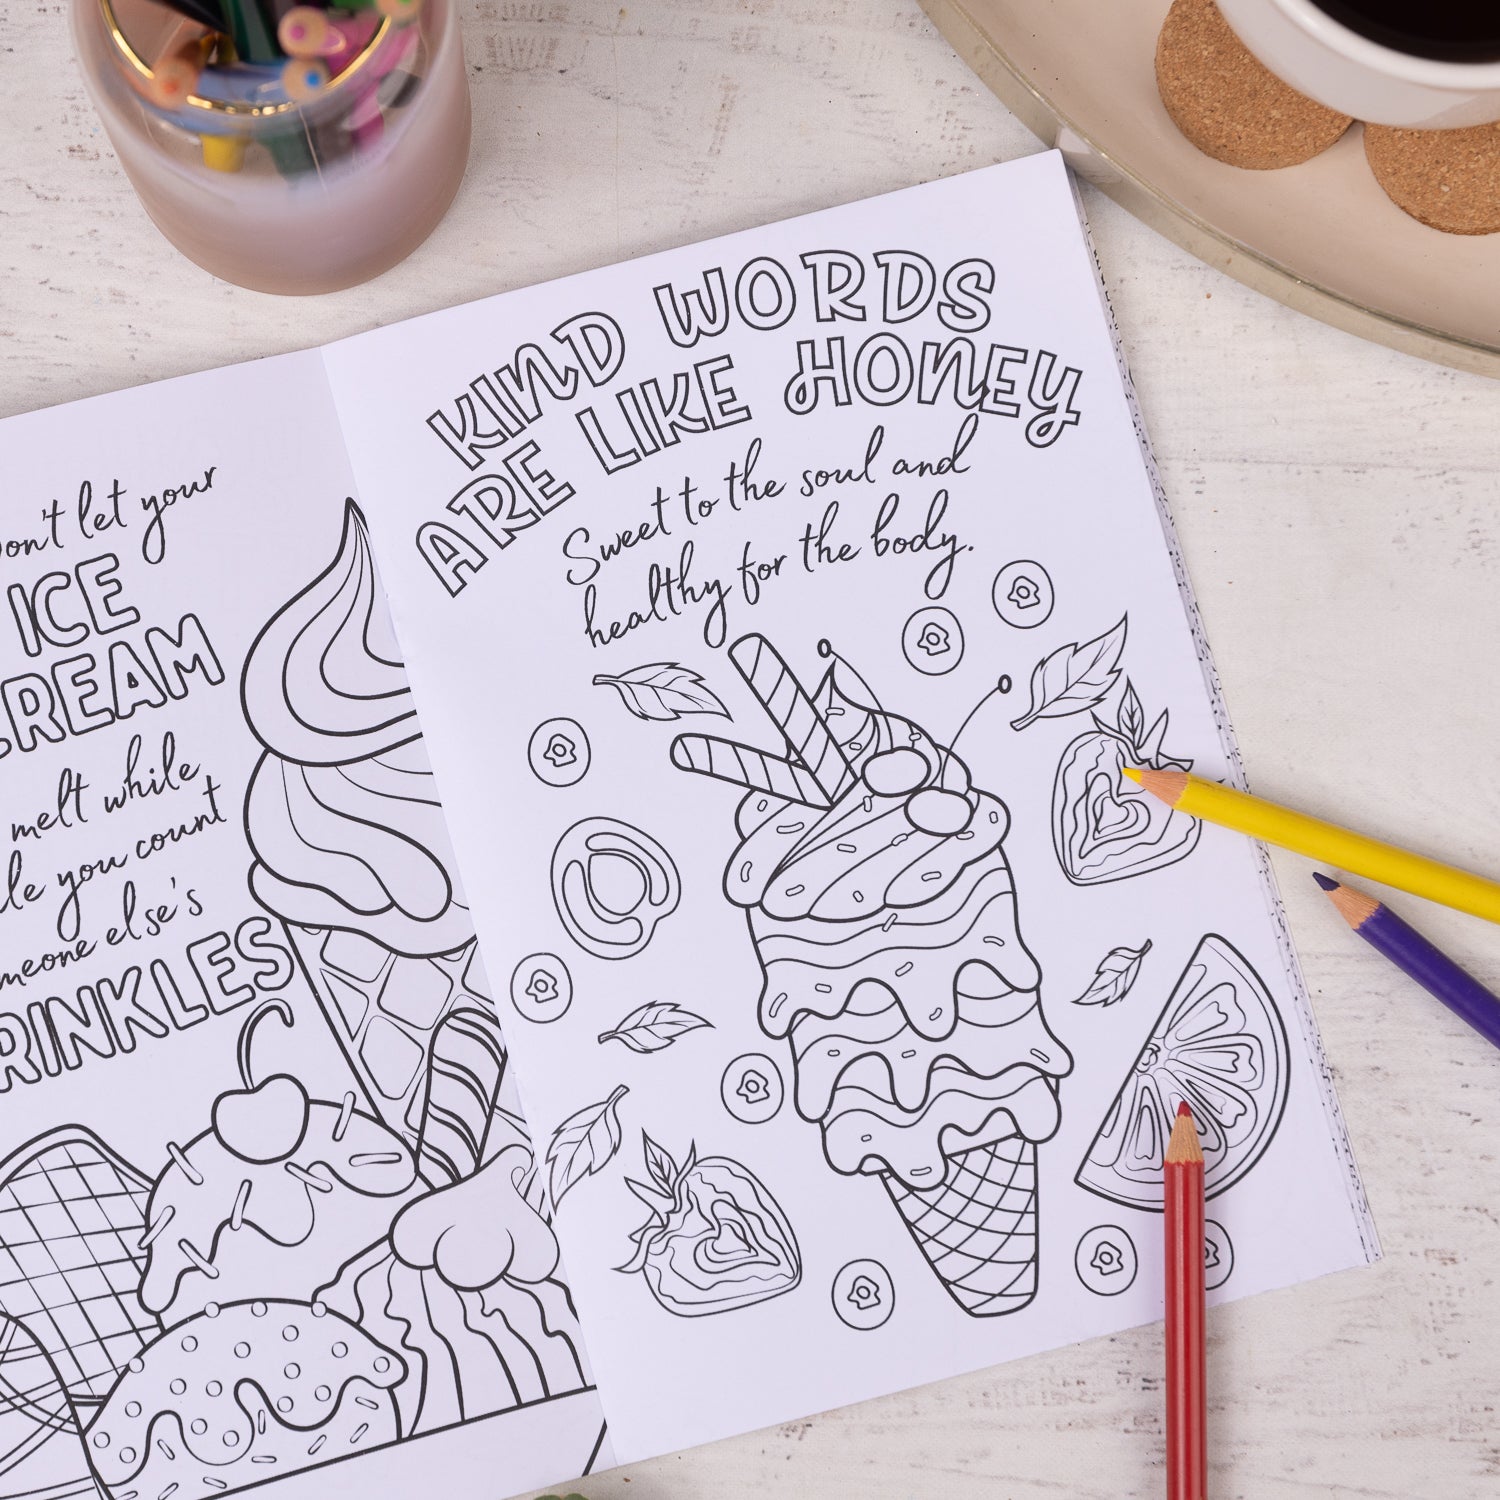 let your
ICE
melt while
you count
else's
KIND WORDS
ARE LIKE HONEY
Sweet to the soul and
healthy for the body.